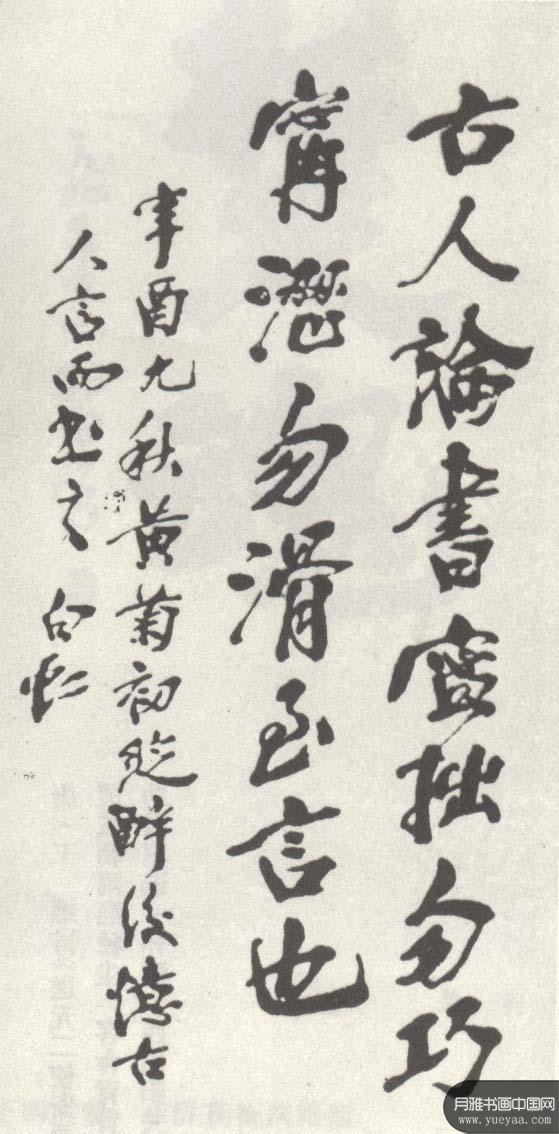 古人論書寧拙勿巧
甯澀勿滑至言也
辛酉九秋黄菊初醉後憶古
人言而書之 白
月雅书画中国网
www.yueyaa.com